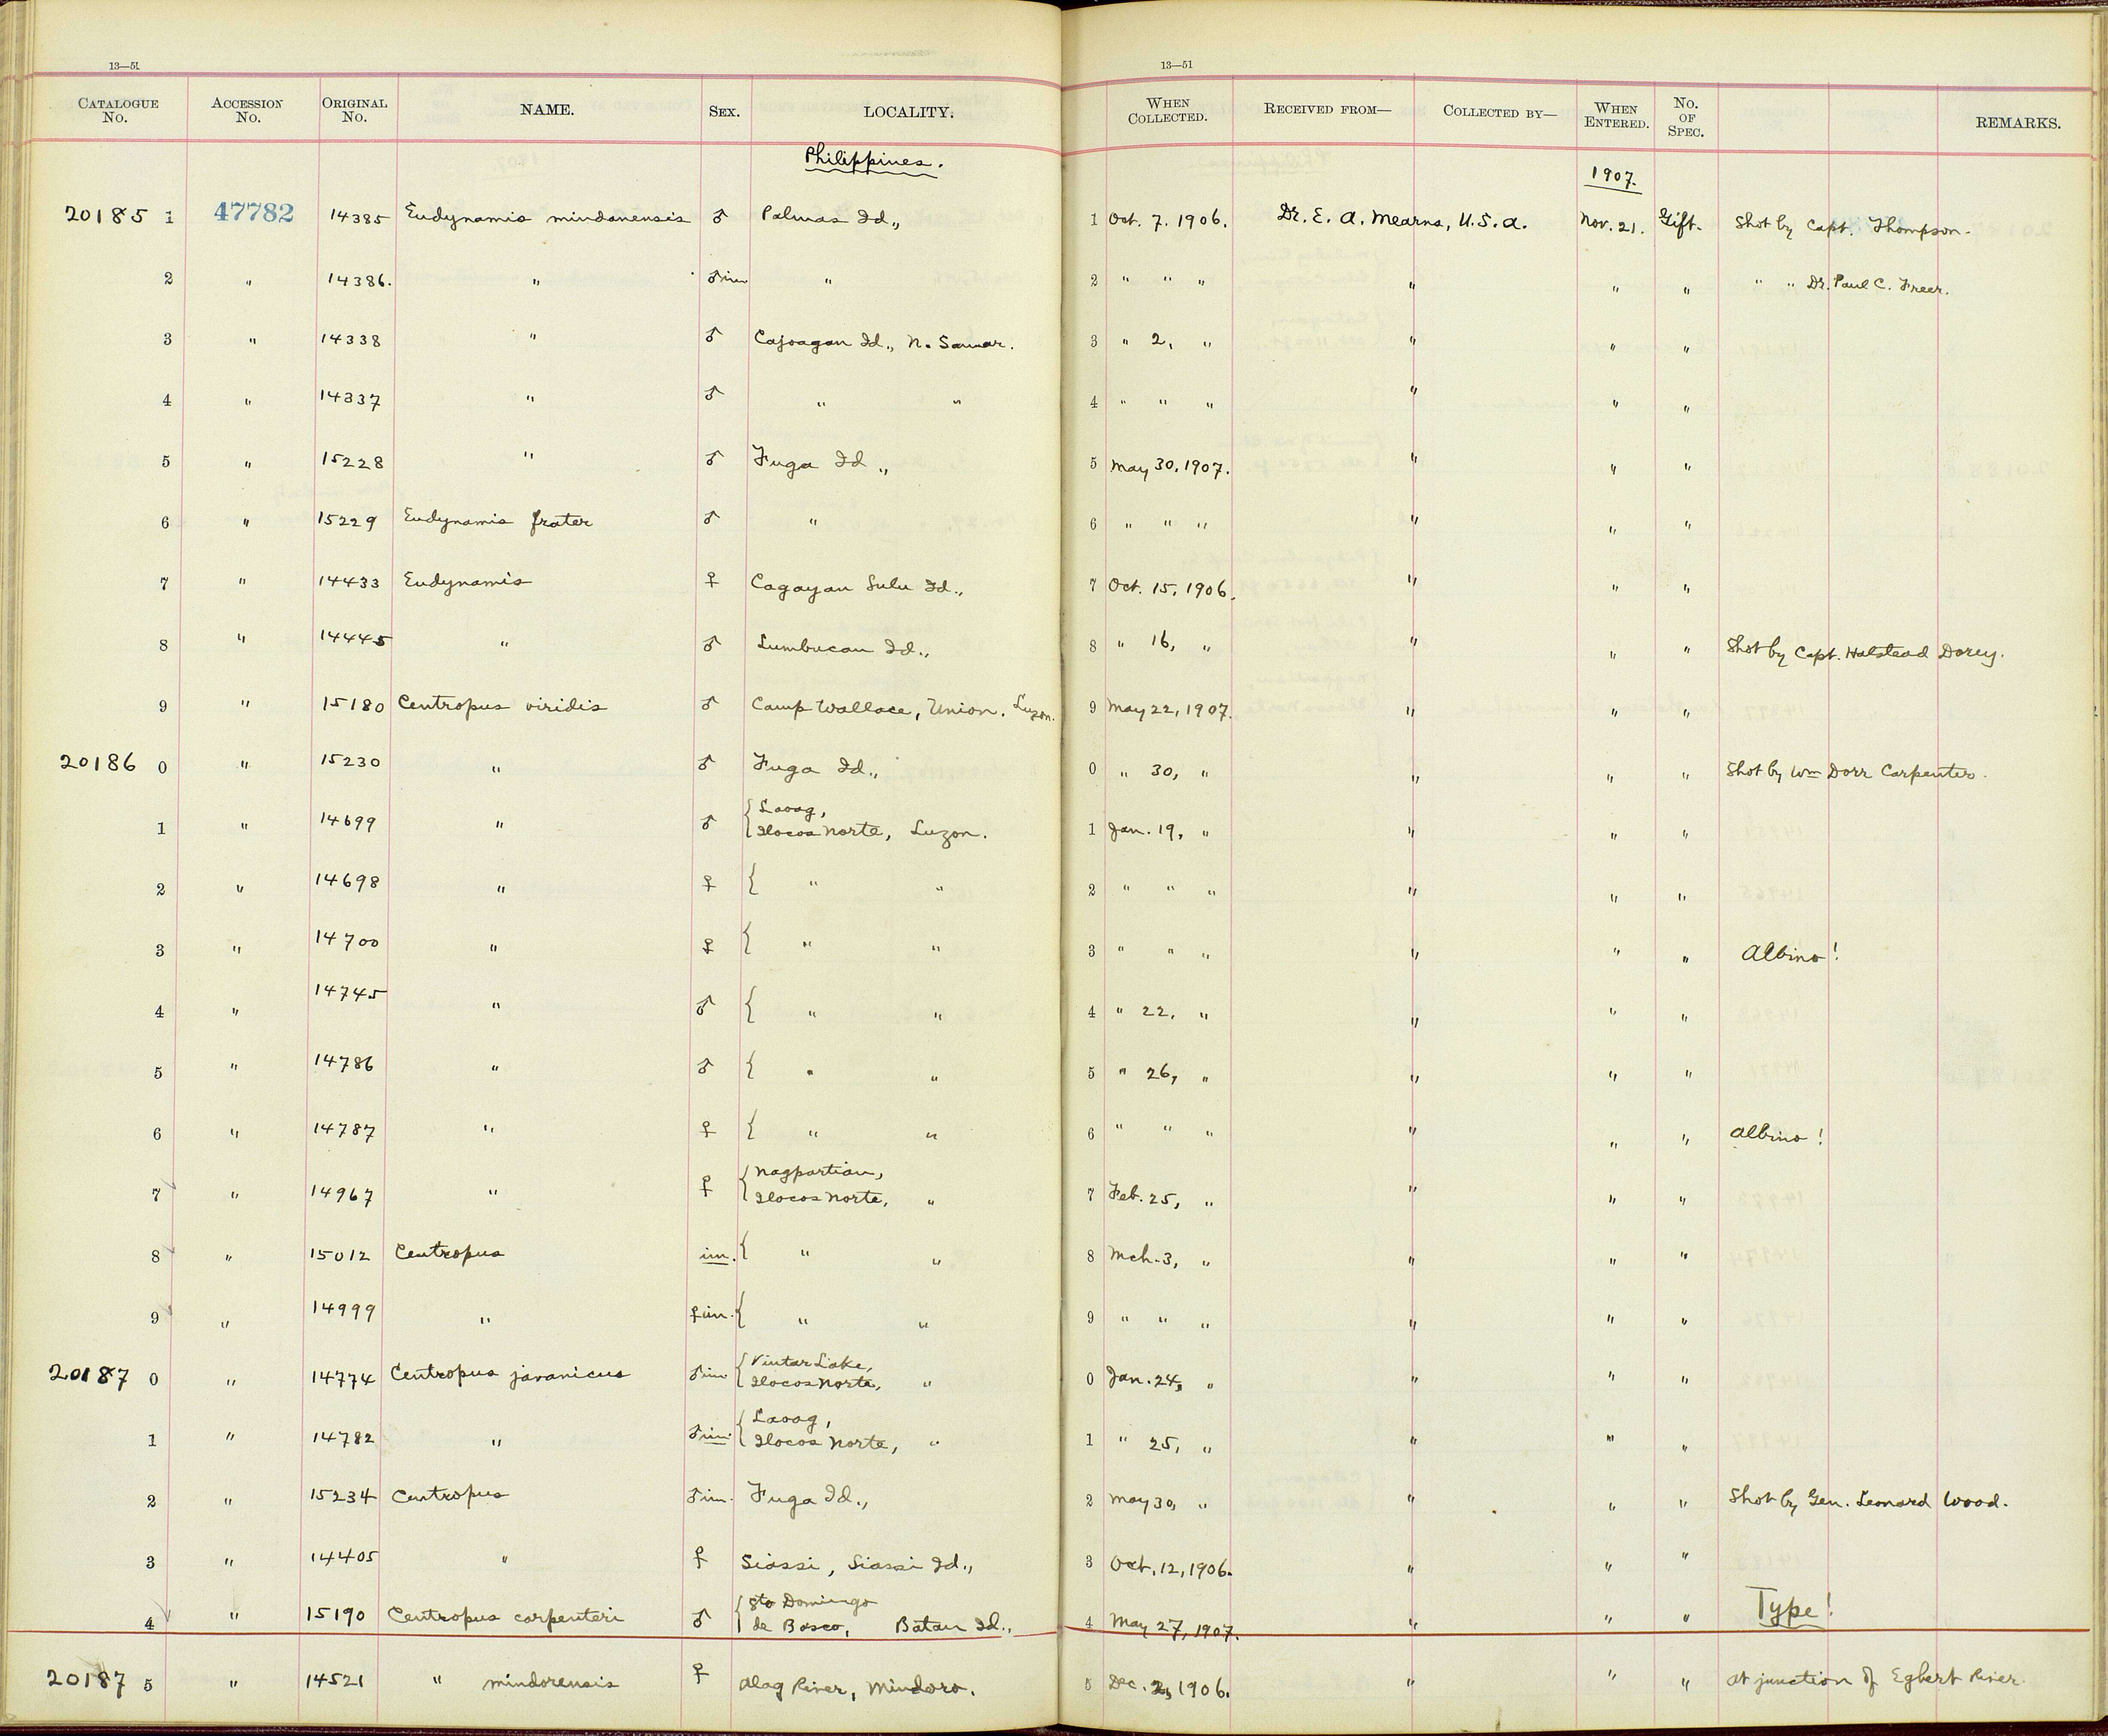 13—51 13—51
CATALOGUE No. ACCESSION No. ORIGINAL No. NAME. SEX. LOCALITY. WHEN COLLECTED. RECEIVED FROM— COLLECTED BY— WHEN ENTERED. No. OF SPEC. REMARKS.
Philippines. 1907.
20185 1 47782 14385 Eudynamis mindanensis ♂ Palmas Id., 1 Oct. 7. 1906. Dr. E. A. Mearns, U.S.A. Nov. 21. Gift. Shot by Capt. Thompson.
2 " 14386. " ♂im " 2 " " " " " " " " Dr. Paul C. Freer.
3 " 14338 " ♂ Cajoagan Id., N. Samar. 3 " 2, " " " "
4 " 14337 " ♂ " " 4 " " " " " "
5 " 15228 " ♂ Fuga Id., 5 May 30, 1907. " " "
6 " 15229 Eudynamis frater ♂ " 6 " " " " " "
7 " 14433 Eudynamis ♀ Cagayan Sulu Id., 7 Oct. 15, 1906. " " "
8 " 14445 " ♂ Lumbucan Id., 8 " 16, " " " " Shot by Capt. Halstead Dorey.
9 " 15180 Centropus viridis ♂ Camp Wallace, Union, Luzon. 9 May 22, 1907. " " "
20186 0 " 15230 " ♂ Fuga Id., 0 " 30, " " " " Shot by Wm Dorr Carpenter.
1 " 14699 " ♂ { Laoag,
Ilocos Norte, Luzon. 1 Jan. 19, " " " "
2 " 14698 " ♀ { " " 2 " " " " " "
3 " 14700 " ♀ { " " 3 " " " " " " Albino!
4 " 14745 " ♂ { " " 4 " 22, " " " "
5 " 14786 " ♂ { " " 5 " 26, " " " "
6 " 14787 " ♀ { " " 6 " " " " " " Albino!
7 " 14967 " ♀ { Nagpartian,
Ilocos Norte, " 7 Feb. 25, " " " "
8 " 15012 Centropus im. { " " 8 Mch. 3, " " " "
9 " 14999 " ♀im. { " " 9 " " " " " "
20187 0 " 14774 Centropus javanicus ♂im { Vintar Lake,
Ilocos Norte, " 0 Jan. 24, " " " "
1 " 14782 " ♂im. { Laoag,
Ilocos Norte, " 1 " 25, " " " "
2 " 15234 Centropus ♂im. Fuga Id., 2 May 30, " " " " Shot by Gen. Leonard Wood.
3 " 14405 " ♀ Siassi, Siassi Id., 3 Oct. 12, 1906. " " "
4 " 15190 Centropus carpenteri ♂ { Sto Domingo
de Basco, Batan Id., 4 May 27, 1907. " " " Type!
20187 5 " 14521 " mindorensis ♀ Alag River, Mindoro. 5 Dec. 2, 1906. " " " At junction of Egbert River.